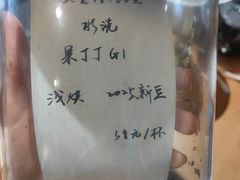 水洗
果丁丁 G1
浅烘 2025新豆
58元/杯